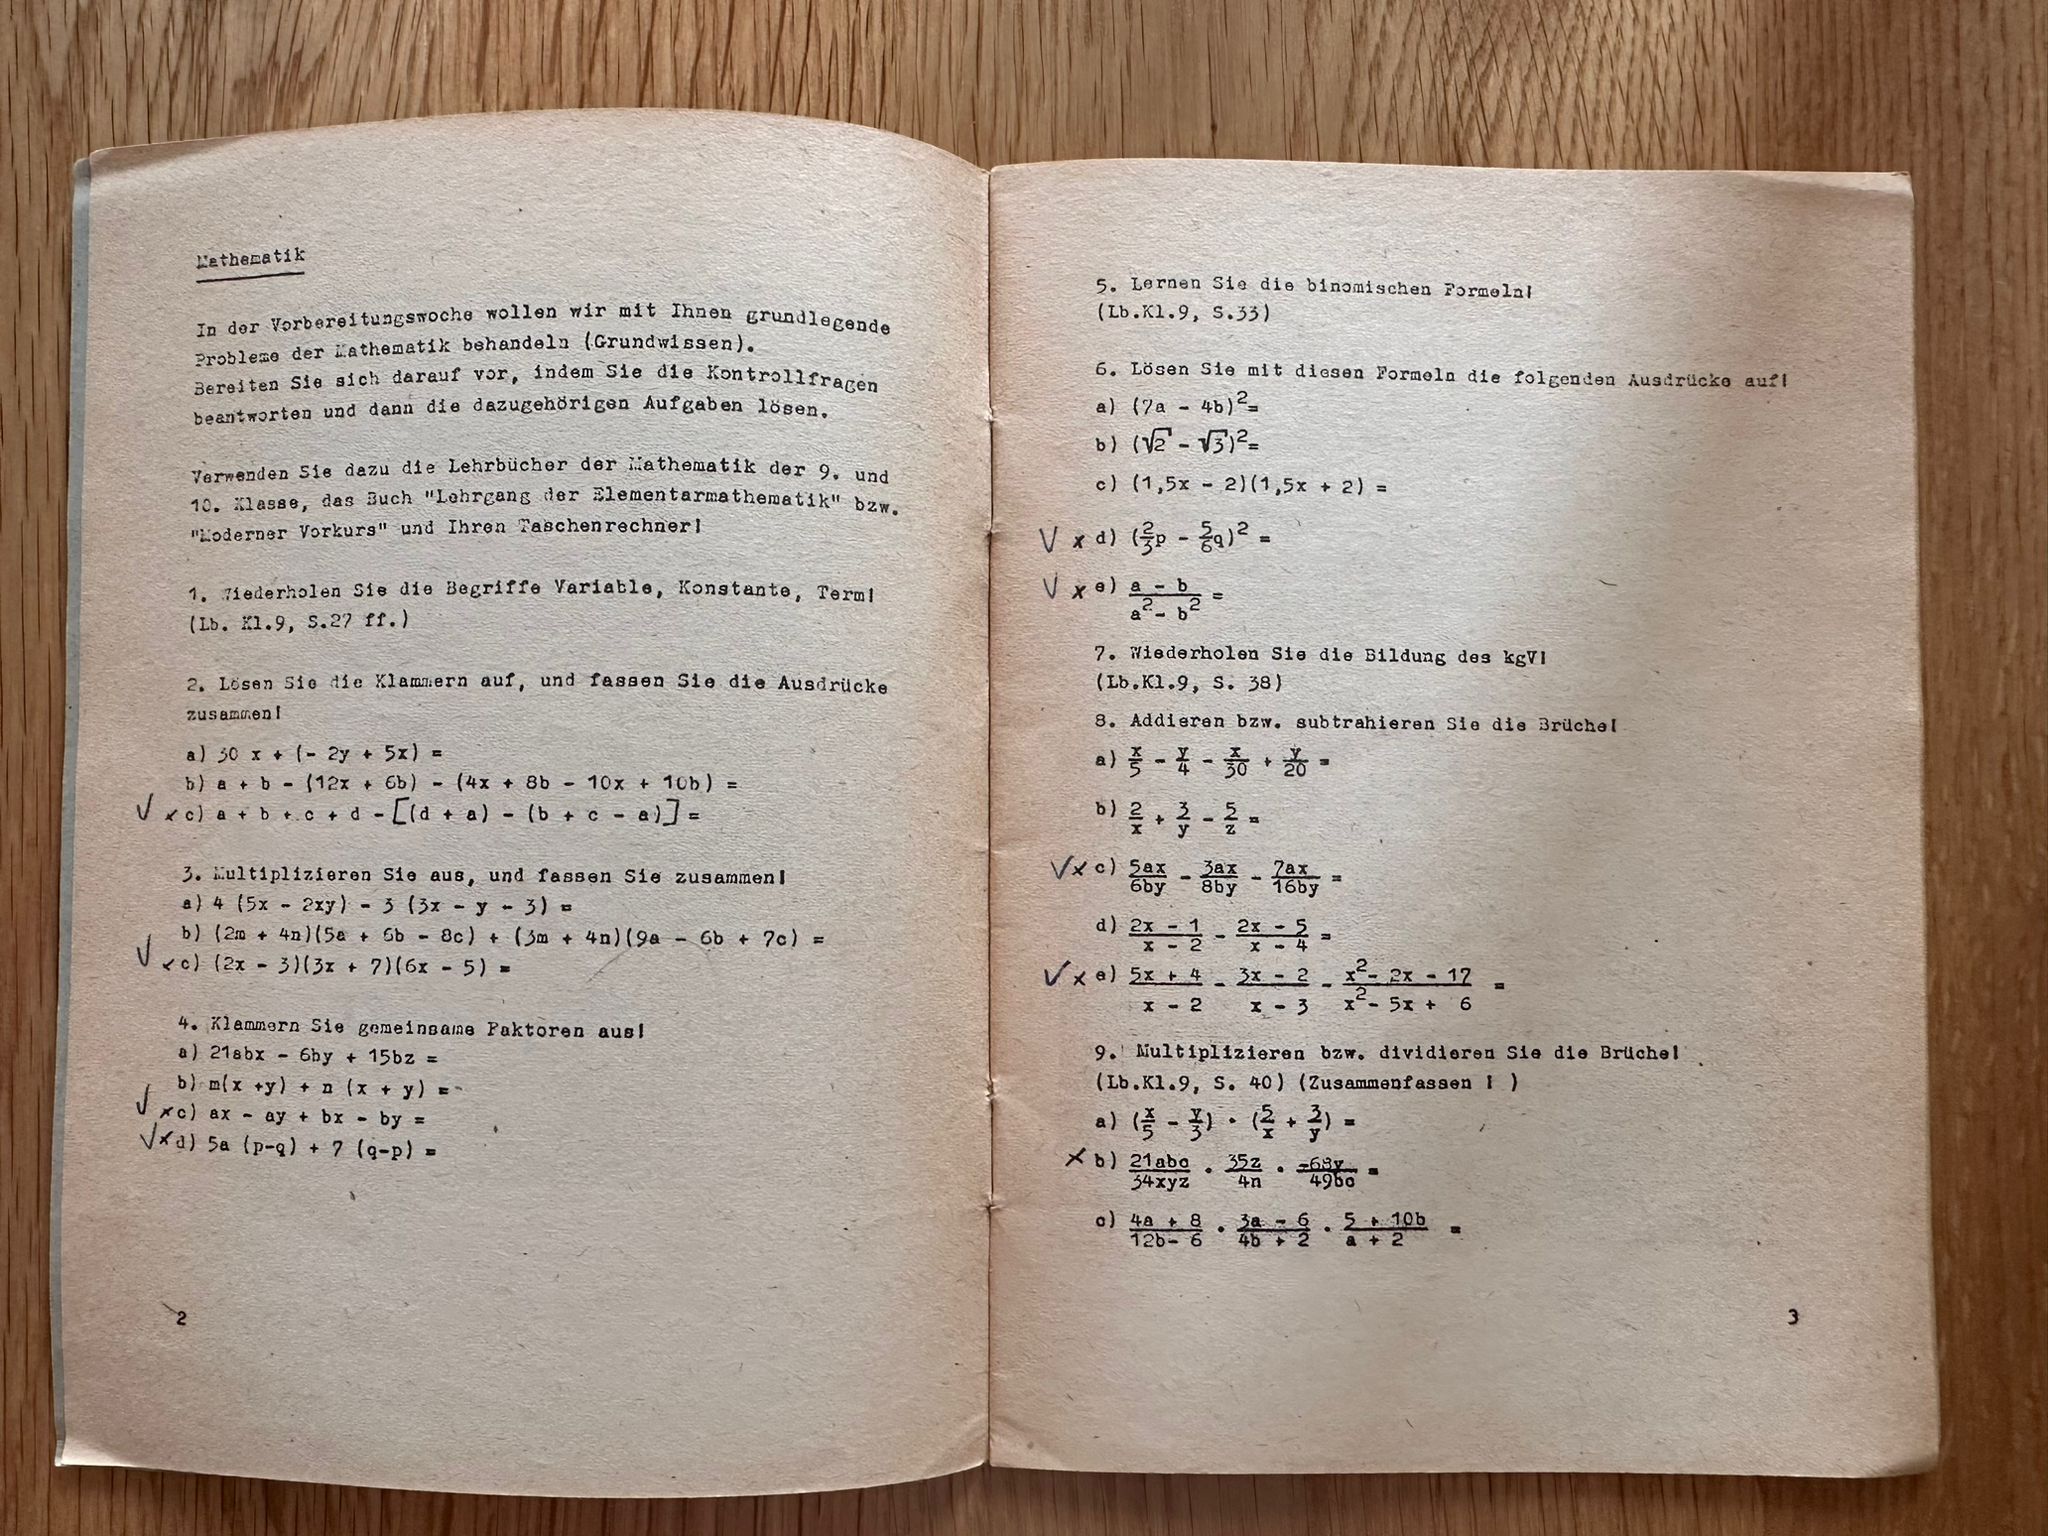 Mathematik
In der Vorbereitungswoche wollen wir mit Ihnen grundlegende
Probleme der Mathematik behandeln (Grundwissen).
Bereiten Sie sich darauf vor, indem Sie die Kontrollfragen
beantworten und dann die dazugehörigen Aufgaben lösen.
Verwenden Sie dazu die Lehrbücher der Mathematik der 9. und
10. Klasse, das Buch "Lehrgang der Elementarmathematik" bzw.
"Moderner Vorkurs" und Ihren Taschenrechner!
1. Wiederholen Sie die Begriffe Variable, Konstante, Term!
(Lb. Kl.9, S.27 ff.)
2. Lösen Sie die Klammern auf, und fassen Sie die Ausdrücke
zusammen!
a) 30 x + (- 2y + 5x) =
b) a + b - (12x + 6b) - (4x + 8b - 10x + 10b) =
✓ x c) a + b + c + d - [(d + a) - (b + c - a)] =
3. Multiplizieren Sie aus, und fassen Sie zusammen!
a) 4 (5x - 2xy) - 3 (3x - y - 3) =
b) (2m + 4n)(5a + 6b - 8c) + (3m + 4n)(9a - 6b + 7c) =
✓ x c) (2x - 3)(3x + 7)(6x - 5) =
4. Klammern Sie gemeinsame Faktoren aus!
a) 21abx - 6by + 15bz =
b) m(x +y) + n (x + y) =
✓ x c) ax - ay + bx - by =
✓ x d) 5a (p-q) + 7 (q-p) =
2
5. Lernen Sie die binomischen Formeln!
(Lb.Kl.9, S.33)
6. Lösen Sie mit diesen Formeln die folgenden Ausdrücke auf!
a) (7a - 4b)²=
b) (√2 - √3)²=
c) (1,5x - 2)(1,5x + 2) =
✓ x d) (2/3 p - 5/6 q)² =
✓ x e) a - b / a² - b² =
7. Wiederholen Sie die Bildung des kgV!
(Lb.Kl.9, S. 38)
8. Addieren bzw. subtrahieren Sie die Brüche!
a) x/5 - y/4 - x/30 + y/20 =
b) 2/x + 3/y - 5/z =
✓ x c) 5ax/6by - 3ax/8by - 7ax/16by =
d) 2x - 1 / x - 2 - 2x - 5 / x - 4 =
✓ x e) 5x + 4 / x - 2 - 3x - 2 / x - 3 - x² - 2x - 17 / x² - 5x + 6 =
9. Multiplizieren bzw. dividieren Sie die Brüche!
(Lb.Kl.9, S. 40) (Zusammenfassen ! )
a) (x/5 - y/3) · (5/x + 3/y) =
x b) 21abc/34xyz · 35z/4n · -68y/49bc =
c) 4a + 8 / 12b- 6 · 3a - 6 / 4b + 2 · 5 + 10b / a + 2 =
3